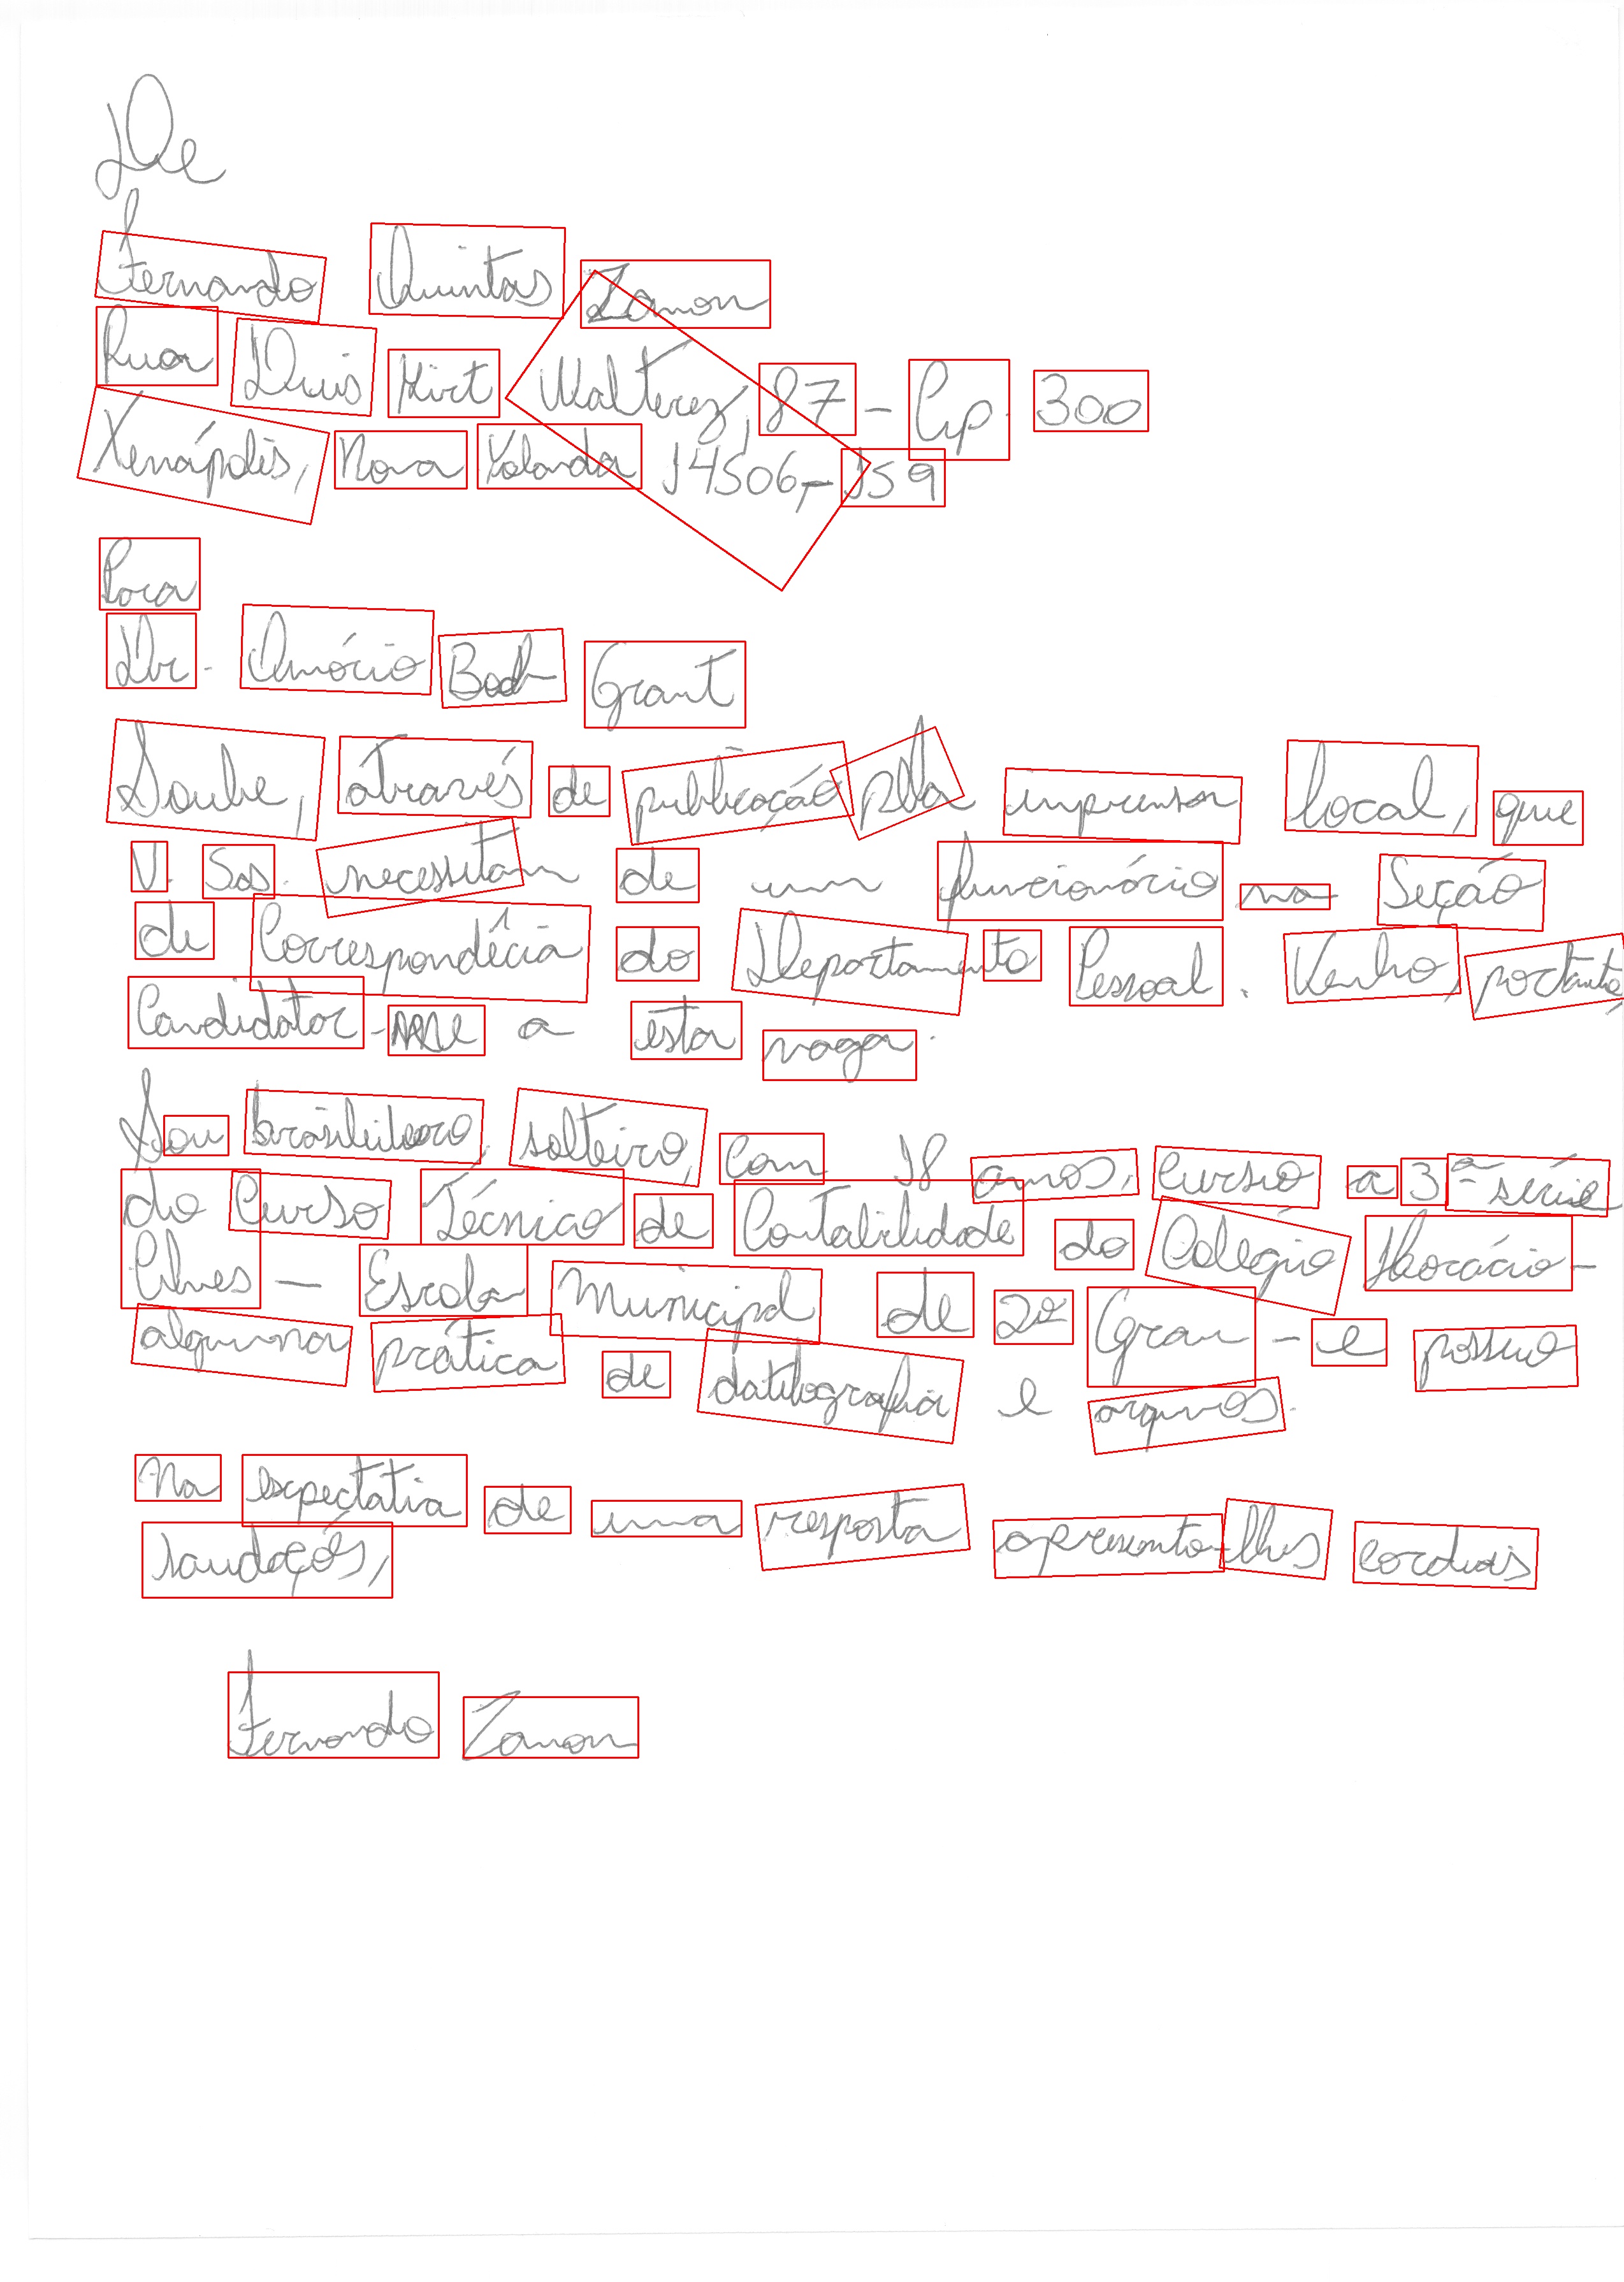 De
Fernando Quintas Zanon
Rua Luis Kirt Walterez, 87 - Cp. 300
Xenápolis, Nova Yolanda 14506,-159
Para
Dr. Amócio Bock Grant
Soube, através de publicação pela imprensa local, que
V. Sas. necessitam de um funcionário na Seção
de Correspondêcia do Departamento Pessoal. Venho, portanto,
Candidatar-me a esta vaga.
Sou brasileiro, solteiro, com 18 anos, curso a 3ª série
do Curso Técnico de Contabilidade do Colégio Horácio-
Alves - Escola Municipal de 2º Grau - e possuo
alguma prática de datilografia e arquivos.
Na expectativa de uma resposta apresento-lhes cordiais
saudações,
Fernando Zanon